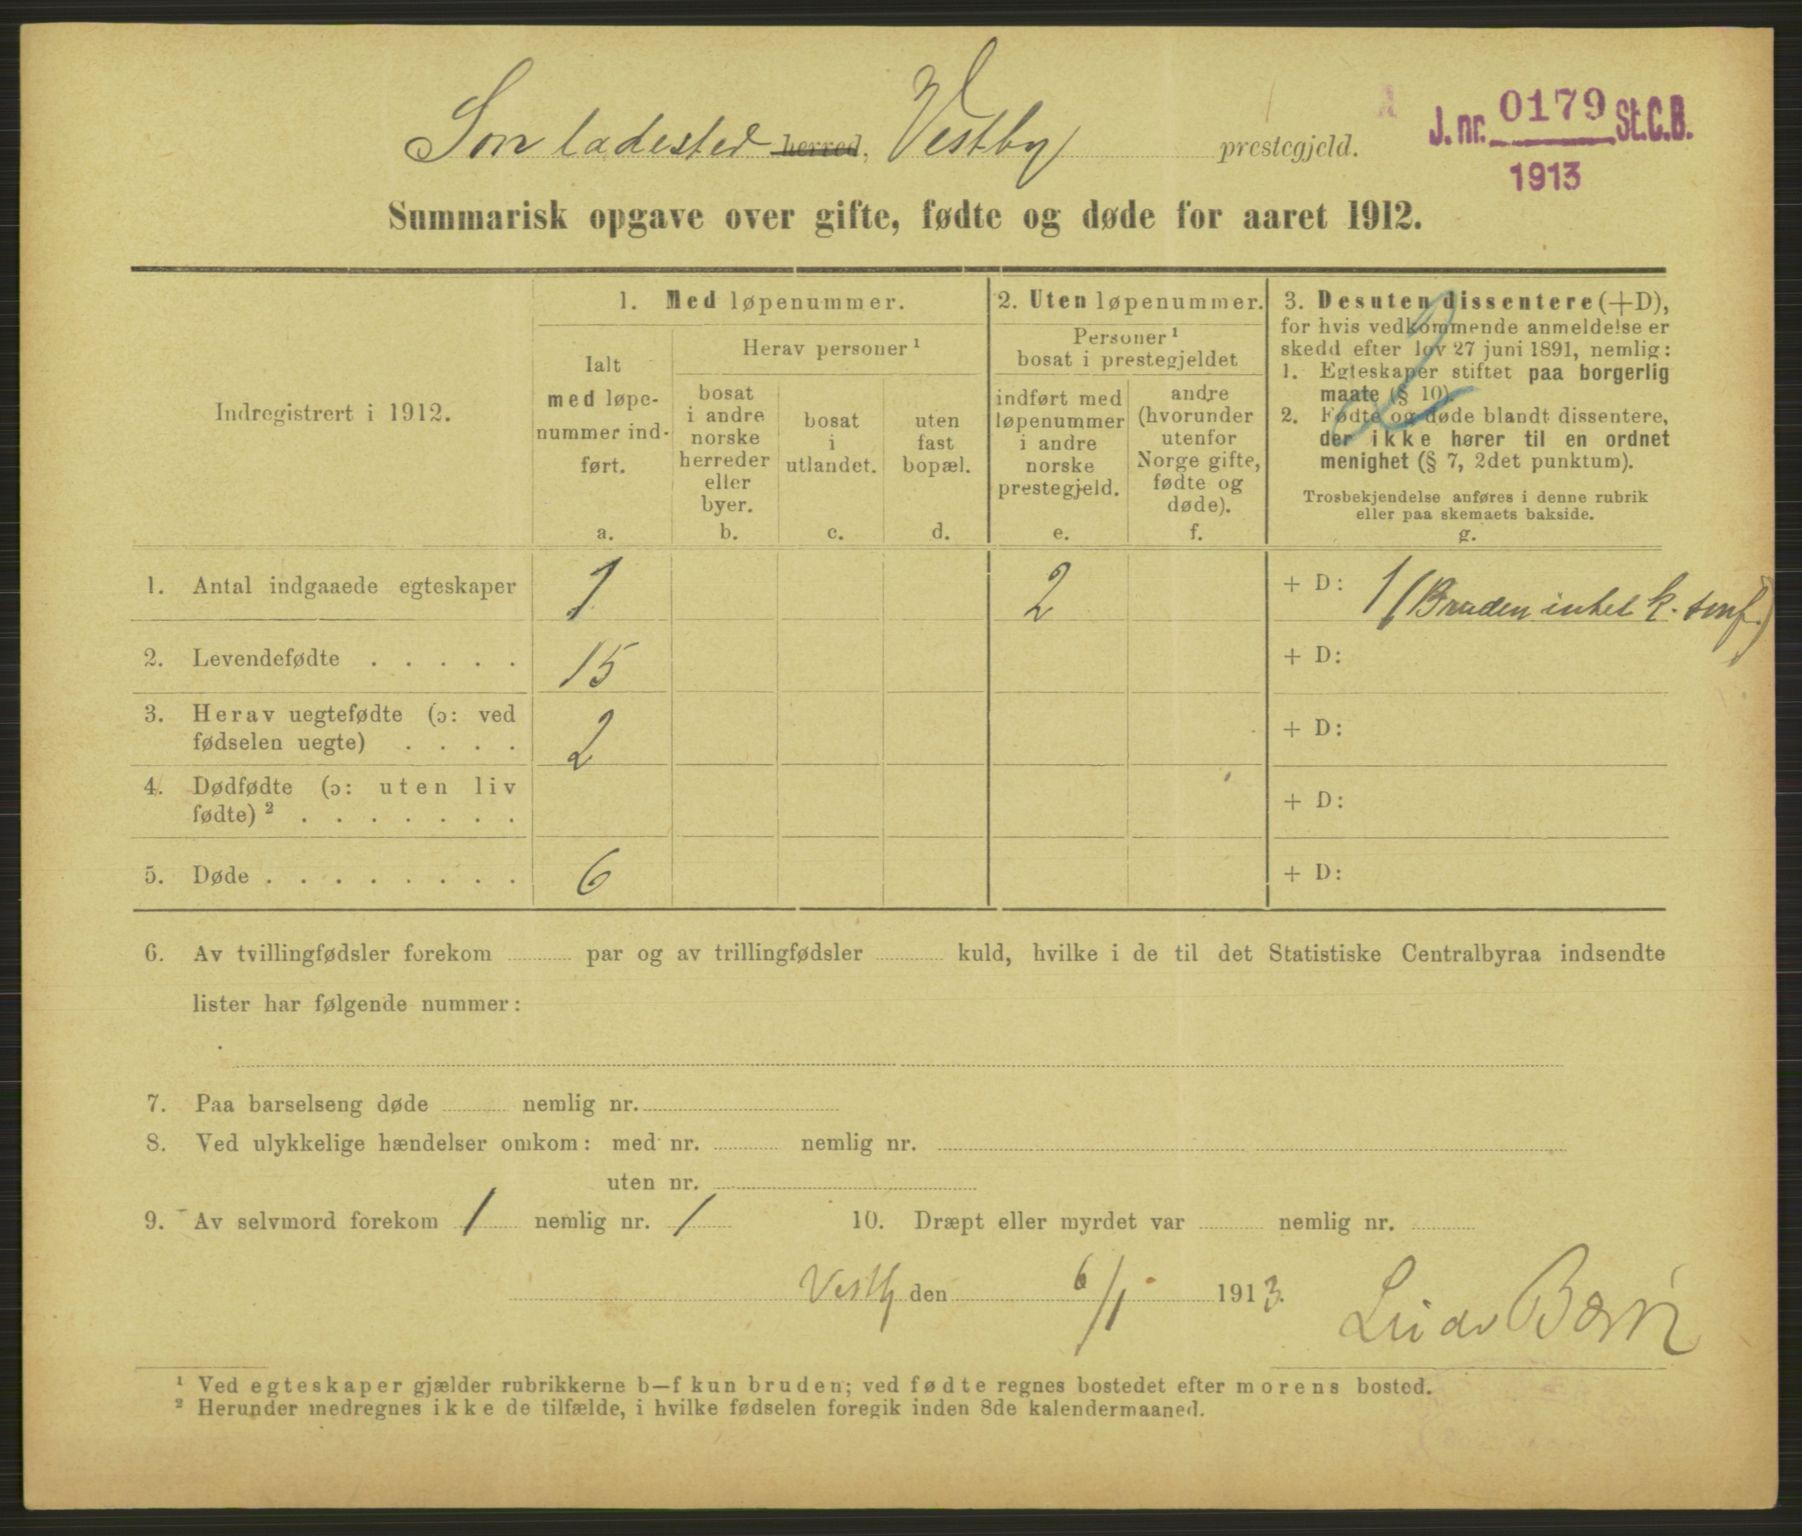 Son ladested herred, Vestby prestegjeld.
J. nr. 0179 St.C.B.
1913
Summarisk opgave over gifte, fødte og døde for aaret 1912.
Indregistrert i 1912.
1. Med løpenummer.
Ialt
med løpe-
nummer ind-
ført.
a.
Herav personer ¹
bosat
i andre
norske
herreder
eller
byer.
b.
bosat
i
utlandet.
c.
uten
fast
bopæl.
d.
2. Uten løpenummer.
Personer ¹
bosat i prestegjeldet
indført med
løpenummer
i andre
norske
prestegjeld.
e.
andre
(hvorunder
utenfor
Norge gifte,
fødte og
døde).
f.
3. Desuten dissentere (+D),
for hvis vedkommende anmeldelse er
skedd efter lov 27 juni 1891, nemlig:
1. Egteskaper stiftet paa borgerlig
maate (§ 10).
2. Fødte og døde blandt dissentere,
der ikke hører til en ordnet
menighet (§ 7, 2det punktum).
Trosbekjendelse anføres i denne rubrik
eller paa skemaets bakside.
g.
2
1. Antal indgaaede egteskaper 1 2 + D: 1 (Bruden intet k.
2. Levendefødte . . . . . 15 + D:
3. Herav uegtefødte (ɔ: ved
fødselen uegte) . . . . 2 + D:
4. Dødfødte (ɔ: uten liv
fødte) ² . . . . . . . + D:
5. Døde . . . . . . . . 6 + D:
6. Av tvillingfødsler forekom par og av trillingfødsler kuld, hvilke i de til det Statistiske Centralbyraa indsendte
lister har følgende nummer:
7. Paa barselseng døde nemlig nr.
8. Ved ulykkelige hændelser omkom: med nr. nemlig nr.
uten nr.
9. Av selvmord forekom 1 nemlig nr. 1 10. Dræpt eller myrdet var nemlig nr.
Vestby den 6/1 1913.
¹ Ved egteskaper gjælder rubrikkerne b—f kun bruden; ved fødte regnes bostedet efter morens bosted.
² Herunder medregnes ikke de tilfælde, i hvilke fødselen foregik inden 8de kalendermaaned.